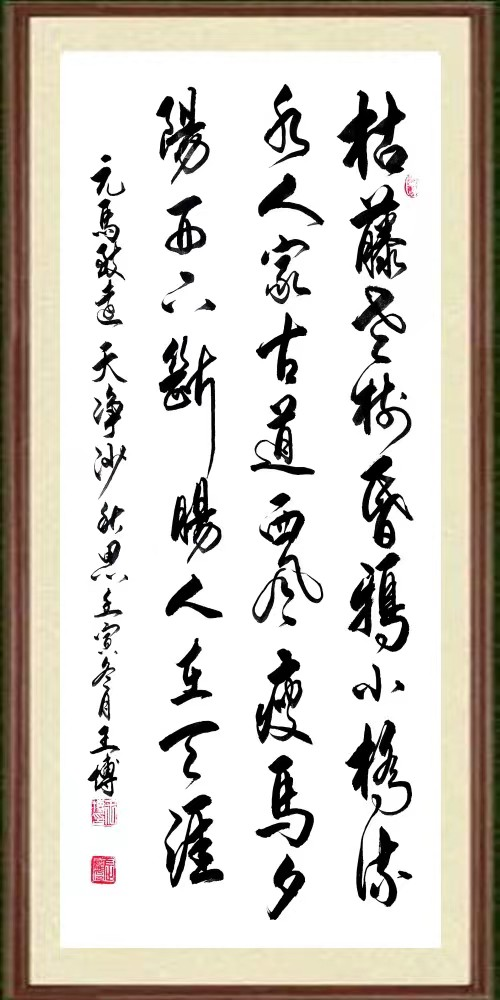 枯藤老树昏鸦小橋流
水人家古道西风瘦馬夕
陽西下斷腸人在天涯
元馬致遠天净沙秋思壬寅冬月王博